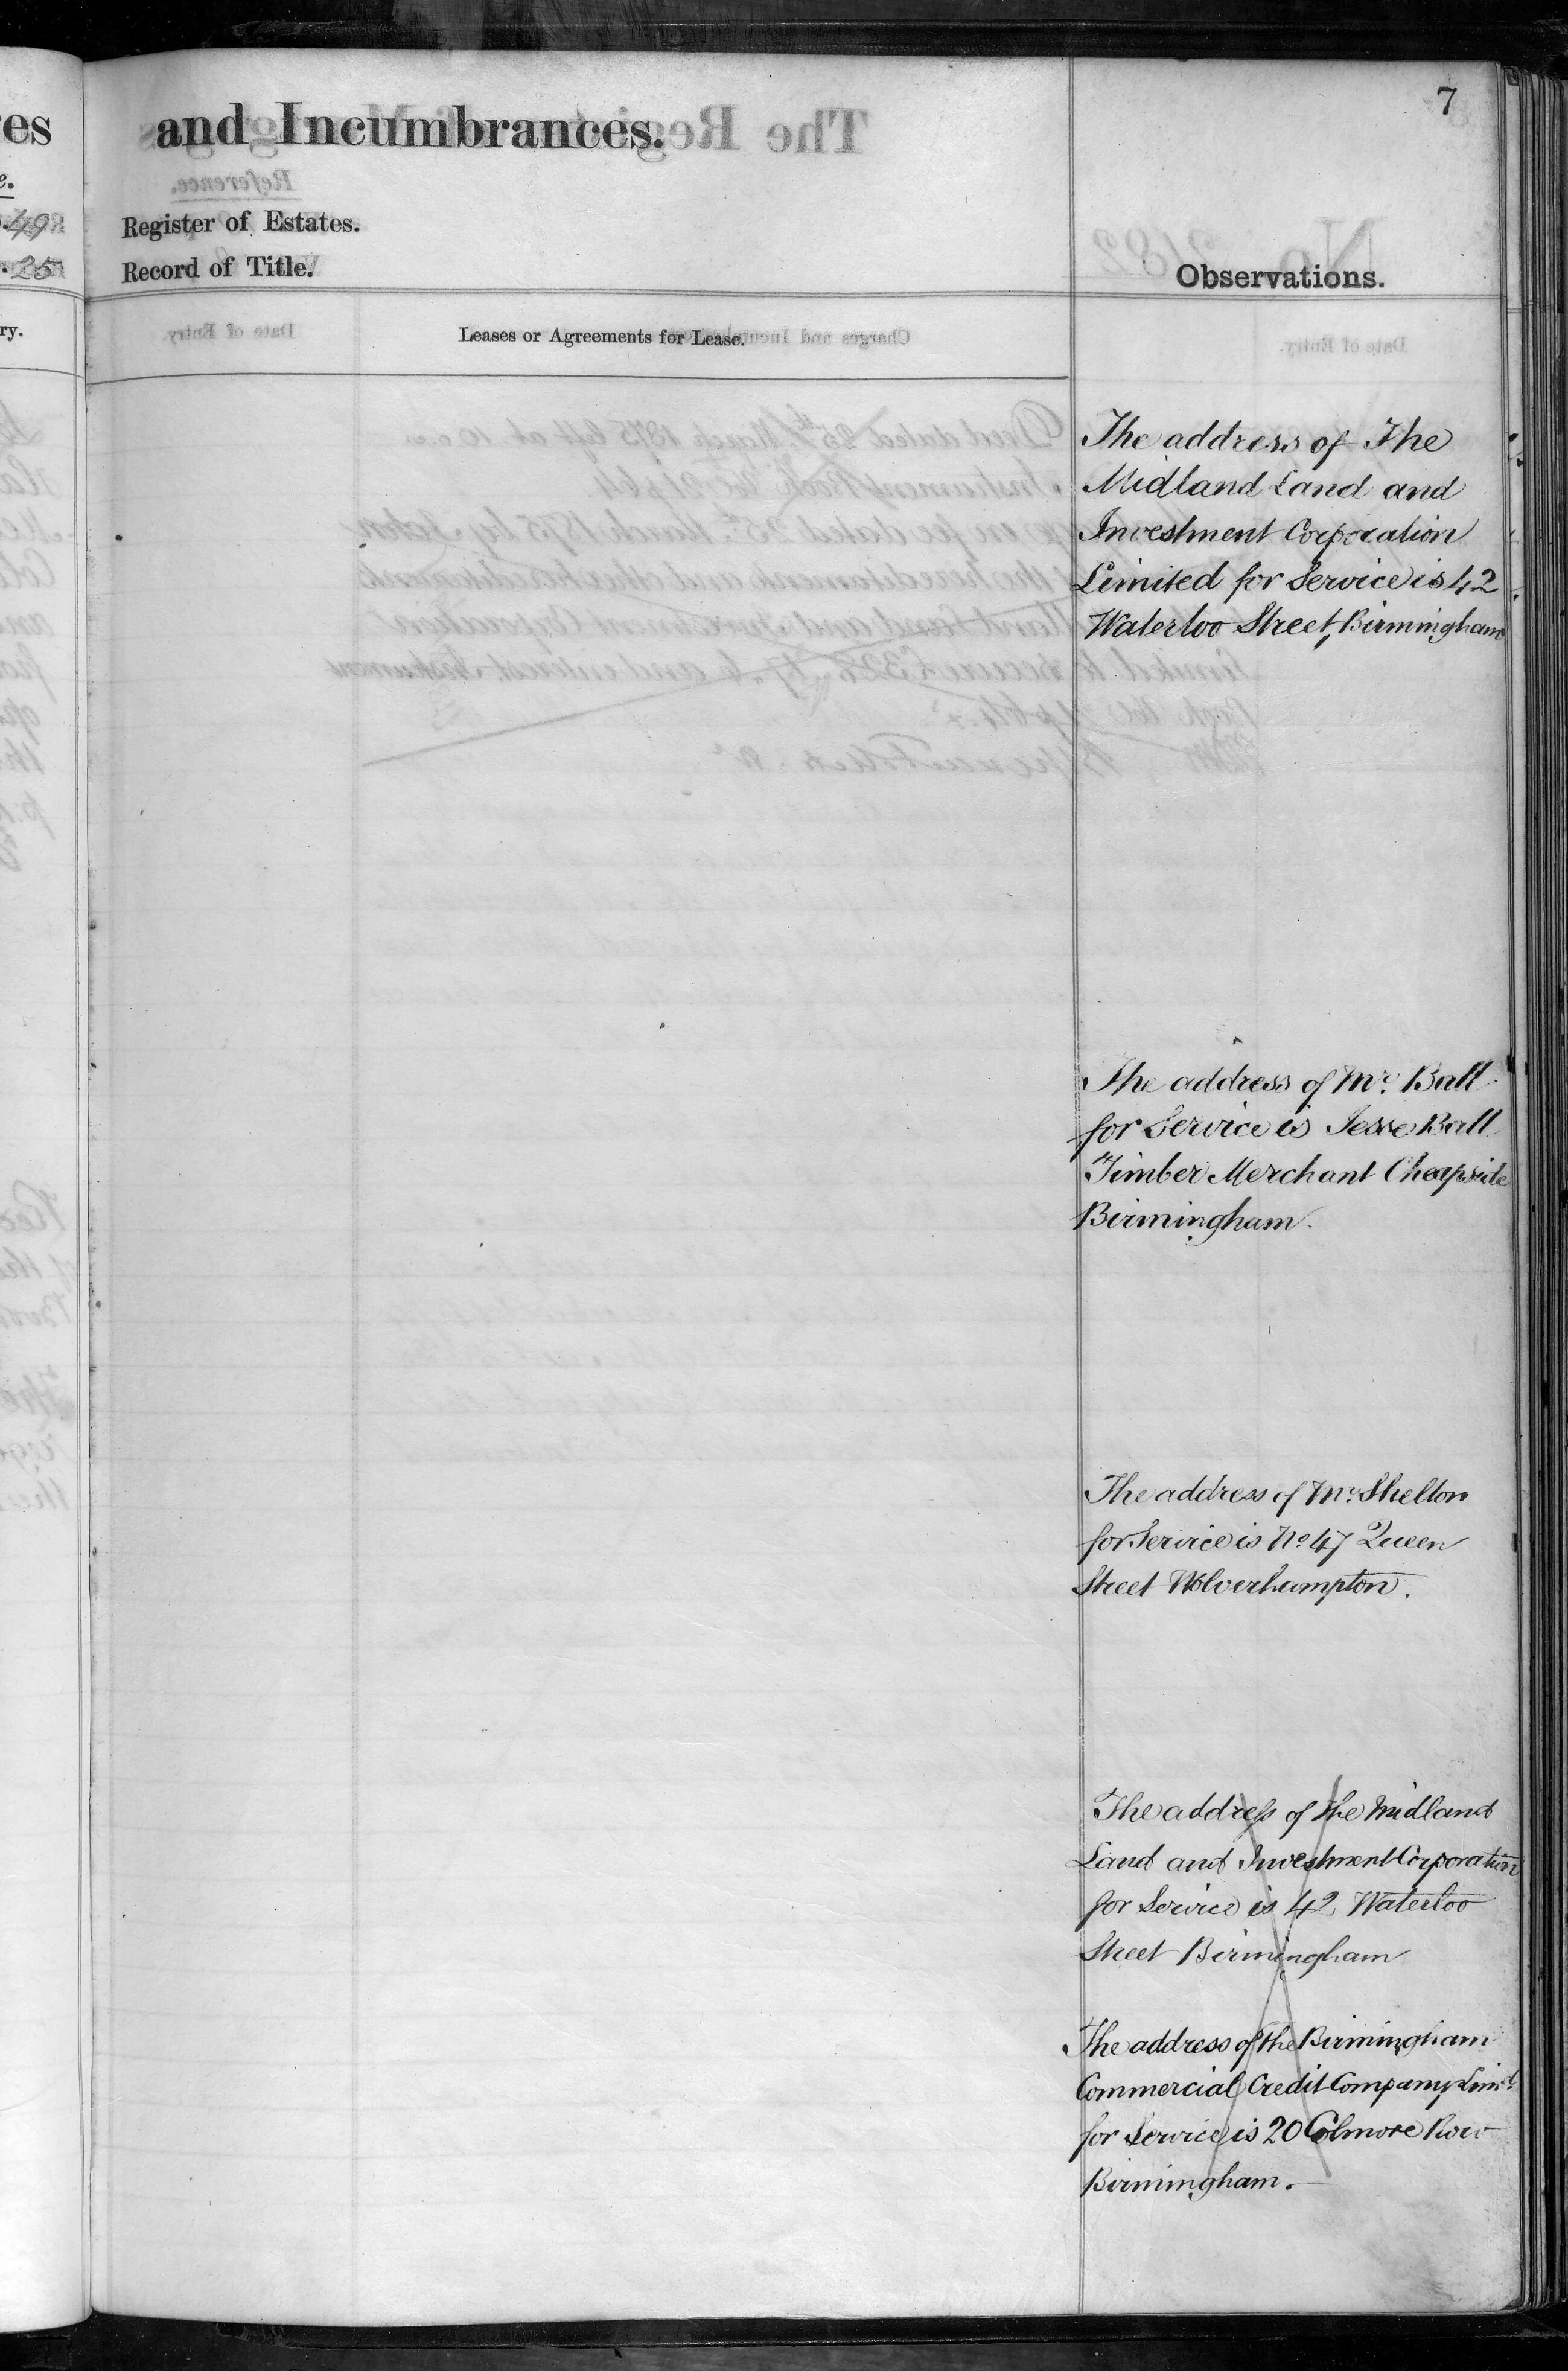 7
and Incumbrances.
Register of Estates.
Record of Title.
Observations.
Leases or Agreements for Lease.
The address of The
Midland Land and
Investment Corporation
Limited for Service is 42
Waterloo Street, Birmingham
The address of Mr. Ball
for Service is Jesse Ball
Timber Merchant Cheapside
Birmingham.
The address of Mr. Shelton
for Service is No. 47 Queen
Street Wolverhampton.
The address of the Midland
Land and Investment Corporation
for Service is 42, Waterloo
Street Birmingham
The address of the Birmingham
Commercial Credit Company Limd.
for Service is 20 Colmore Row
Birmingham.
es
e.
49
25
ry.